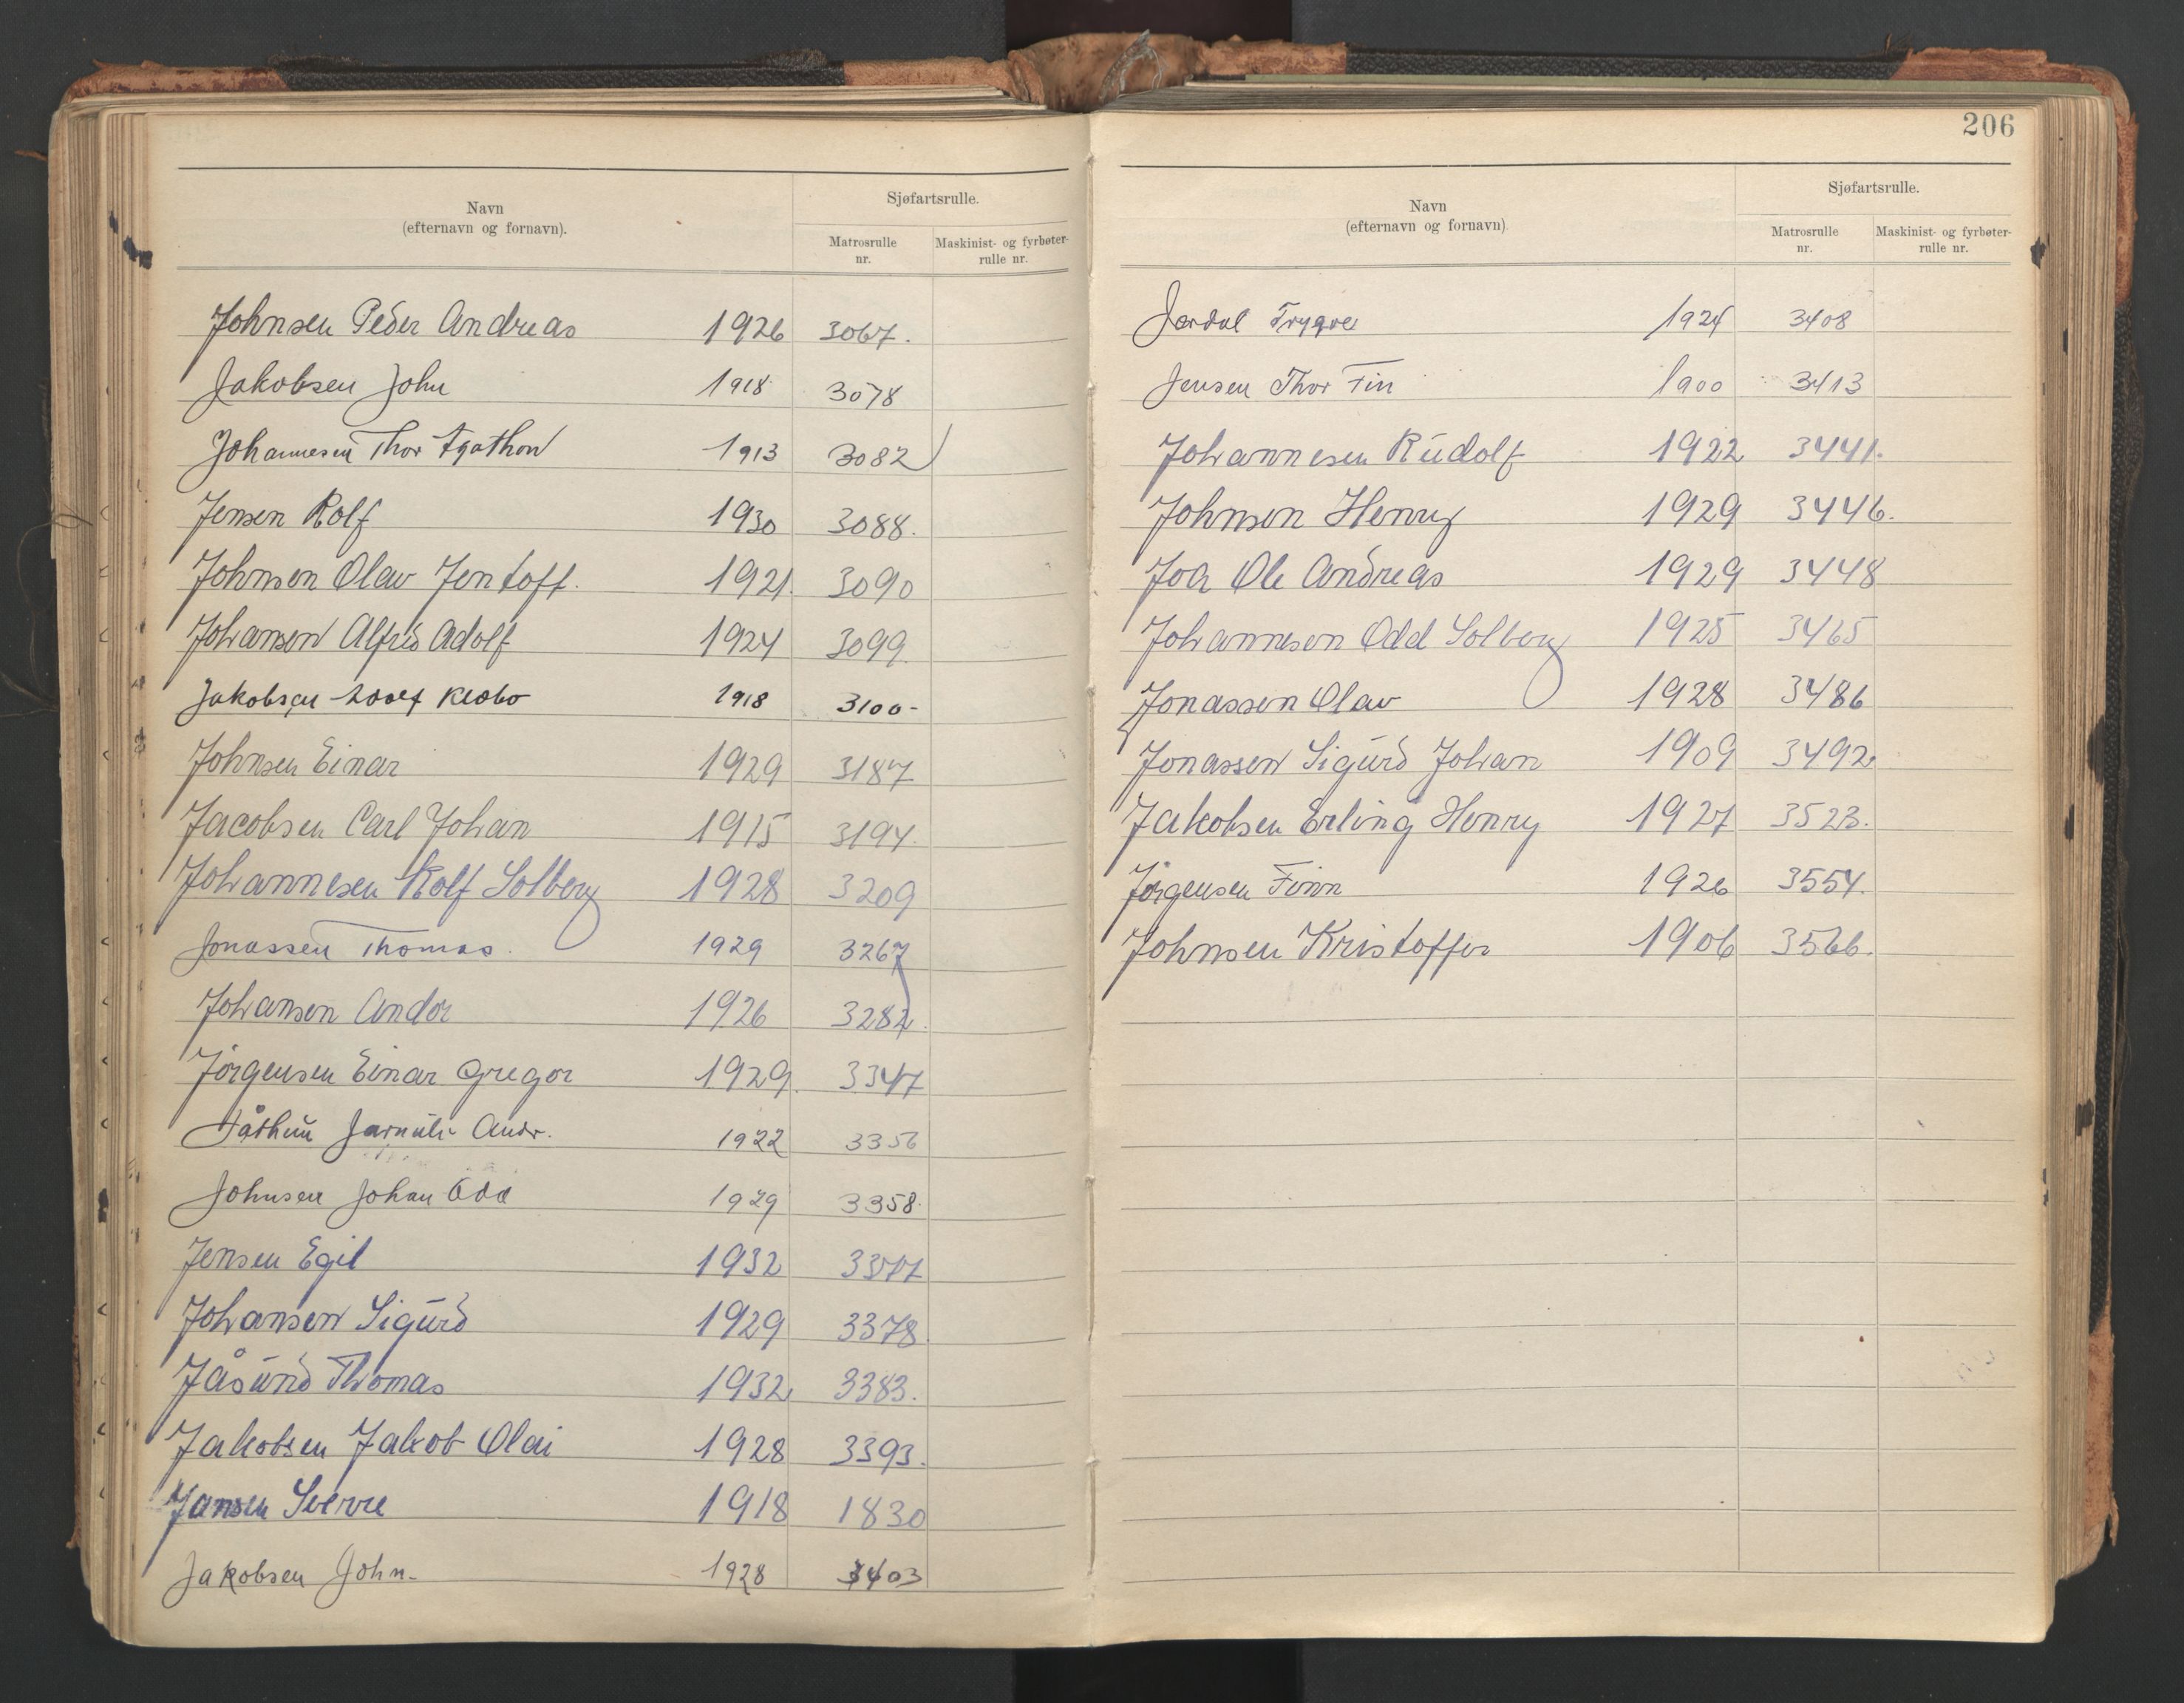 Navn
(efternavn og fornavn).
Sjøfartsrulle.
Matrosrulle nr.
Maskinist- og fyrbøter-rulle nr.
Johnsen Peder Andreas 1926 3067.
Jakobsen John 1918 3078
Johannesen Thor Agathon 1913 3082
Jensen Rolf 1930 3088.
Johnsen Olav Jentoft. 1921. 3090
Johansen Alfred Adolf 1924 3099.
Jakobsen Adolf Klobo 1918 3100-
Johnsen Einar 1929 3187
Jacobsen Carl Johan 1915 3194.
Johannesen Rolf Solberg 1928 3209
Jonassen Thomas. 1929 3267
Johansen Andor 1926 3282.
Jørgensen Einar Gregor 1929. 3347
Andr. 1922 3356
Johnsen Johan Odd 1929 3358.
Jensen Egil 1932 3377
Johansen Sigurd 1929 3378.
Jåsund Thomas 1932 3383.
Jakobsen Jakob Olai 1928 3393.
Jansen Sverre 1918 1830
Jakobsen John- 1928 3403
206
Navn
(efternavn og fornavn)
Sjøfartsrulle.
Matrosrulle nr.
Maskinist- og fyrbøter-rulle nr.
Jordal Trygve 1924 3408
Jensen Thor Fin 1900 3413
Johannesen Rudolf 1922 3441.
Johnsen Henry 1929 3446.
Joa Ole Andreas 1929 3448
Johannesen Odd Solberg 1925 3465
Jonassen Olav 1928 3486
Jonassen Sigurd Johan 1909 3492
Jakobsen Erling Henry 1927 3523.
Jørgensen Finn 1926 3554.
Johnsen Kristoffer 1906 3566.